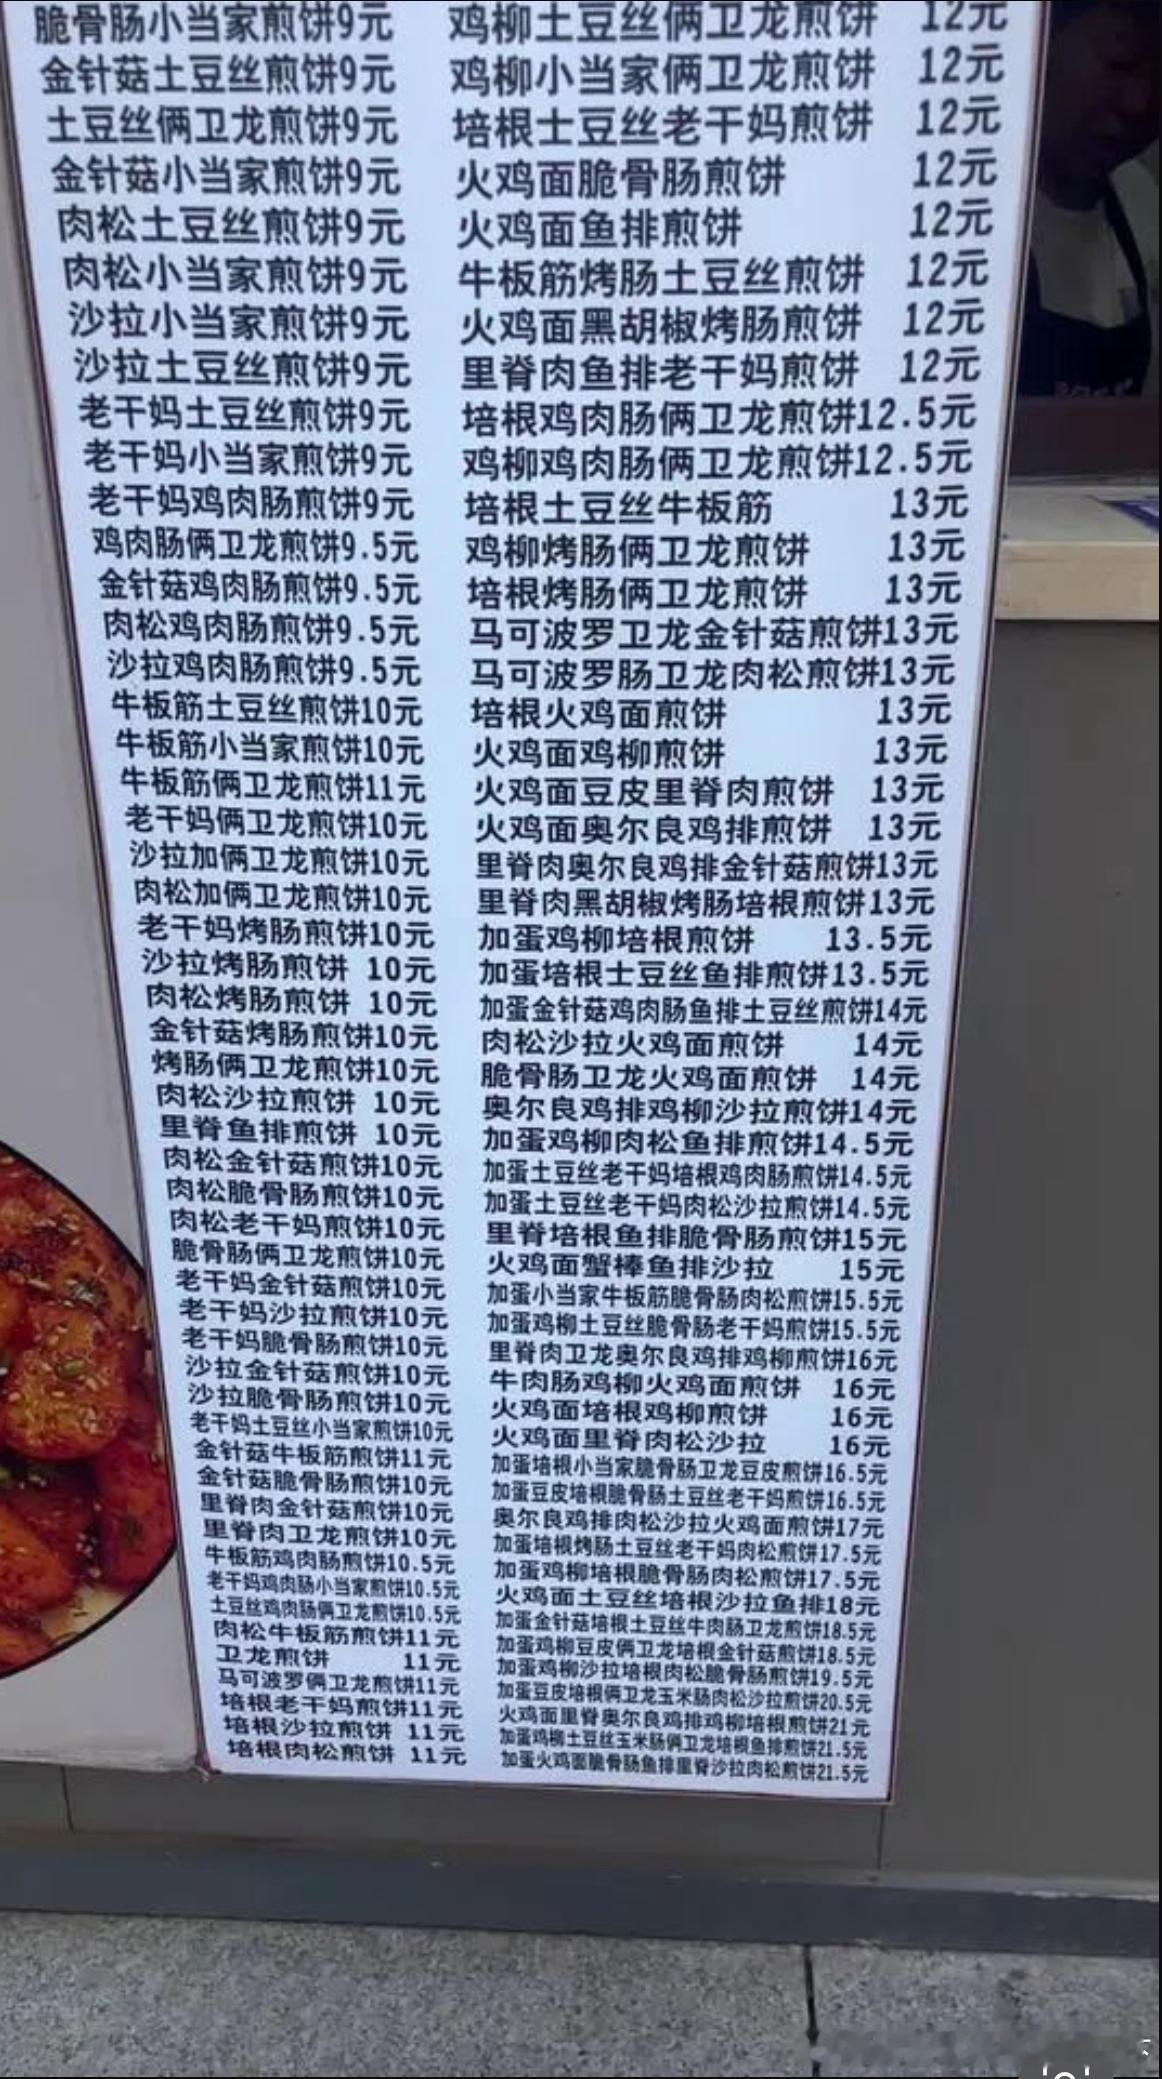 脆骨肠小当家煎饼9元
金针菇土豆丝煎饼9元
土豆丝俩卫龙煎饼9元
金针菇小当家煎饼9元
肉松土豆丝煎饼9元
肉松小当家煎饼9元
沙拉小当家煎饼9元
沙拉土豆丝煎饼9元
老干妈土豆丝煎饼9元
老干妈小当家煎饼9元
老干妈鸡肉肠煎饼9元
鸡肉肠俩卫龙煎饼9.5元
金针菇鸡肉肠煎饼9.5元
肉松鸡肉肠煎饼9.5元
沙拉鸡肉肠煎饼9.5元
牛板筋土豆丝煎饼10元
牛板筋小当家煎饼10元
牛板筋俩卫龙煎饼11元
老干妈俩卫龙煎饼10元
沙拉加俩卫龙煎饼10元
肉松加俩卫龙煎饼10元
老干妈烤肠煎饼10元
沙拉烤肠煎饼 10元
肉松烤肠煎饼 10元
金针菇烤肠煎饼10元
烤肠俩卫龙煎饼10元
肉松沙拉煎饼 10元
里脊鱼排煎饼 10元
肉松金针菇煎饼10元
肉松脆骨肠煎饼10元
肉松老干妈煎饼10元
脆骨肠俩卫龙煎饼10元
老干妈金针菇煎饼10元
老干妈沙拉煎饼10元
老干妈脆骨肠煎饼10元
沙拉金针菇煎饼10元
沙拉脆骨肠煎饼10元
老干妈土豆丝小当家煎饼10元
金针菇牛板筋煎饼11元
金针菇脆骨肠煎饼10元
里脊肉金针菇煎饼10元
里脊肉卫龙煎饼10元
牛板筋鸡肉肠煎饼10.5元
老干妈鸡肉肠小当家煎饼10.5元
土豆丝鸡肉肠俩卫龙煎饼10.5元
肉松牛板筋煎饼11元
卫龙煎饼 11元
马可波罗俩卫龙煎饼11元
培根老干妈煎饼11元
培根沙拉煎饼 11元
培根肉松煎饼 11元
鸡柳土豆丝俩卫龙煎饼 12元
鸡柳小当家俩卫龙煎饼 12元
培根士豆丝老干妈煎饼 12元
火鸡面脆骨肠煎饼 12元
火鸡面鱼排煎饼 12元
牛板筋烤肠土豆丝煎饼 12元
火鸡面黑胡椒烤肠煎饼 12元
里脊肉鱼排老干妈煎饼 12元
培根鸡肉肠俩卫龙煎饼12.5元
鸡柳鸡肉肠俩卫龙煎饼12.5元
培根土豆丝牛板筋 13元
鸡柳烤肠俩卫龙煎饼 13元
培根烤肠俩卫龙煎饼 13元
马可波罗卫龙金针菇煎饼13元
马可波罗肠卫龙肉松煎饼13元
培根火鸡面煎饼 13元
火鸡面鸡柳煎饼 13元
火鸡面豆皮里脊肉煎饼 13元
火鸡面奥尔良鸡排煎饼 13元
里脊肉奥尔良鸡排金针菇煎饼13元
里脊肉黑胡椒烤肠培根煎饼13元
加蛋鸡柳培根煎饼 13.5元
加蛋培根士豆丝鱼排煎饼13.5元
加蛋金针菇鸡肉肠鱼排土豆丝煎饼14元
肉松沙拉火鸡面煎饼 14元
脆骨肠卫龙火鸡面煎饼 14元
奥尔良鸡排鸡柳沙拉煎饼14元
加蛋鸡柳肉松鱼排煎饼14.5元
加蛋土豆丝老干妈培根鸡肉肠煎饼14.5元
加蛋土豆丝老干妈肉松沙拉煎饼14.5元
里脊培根鱼排脆骨肠煎饼15元
火鸡面蟹棒鱼排沙拉 15元
加蛋小当家牛板筋脆骨肠肉松煎饼15.5元
加蛋鸡柳土豆丝脆骨肠老干妈煎饼15.5元
里脊肉卫龙奥尔良鸡排鸡柳煎饼16元
牛肉肠鸡柳火鸡面煎饼 16元
火鸡面培根鸡柳煎饼 16元
火鸡面里脊肉松沙拉 16元
加蛋培根小当家脆骨肠卫龙豆皮煎饼16.5元
加蛋豆皮培根脆骨肠土豆丝老干妈煎饼16.5元
奥尔良鸡排肉松沙拉火鸡面煎饼17元
加蛋培根烤肠土豆丝老干妈肉松煎饼17.5元
加蛋鸡柳培根脆骨肠肉松煎饼17.5元
火鸡面土豆丝培根沙拉鱼排18元
加蛋金针菇培根土豆丝牛肉肠卫龙煎饼18.5元
加蛋鸡柳豆皮俩卫龙培根金针菇煎饼18.5元
加蛋鸡柳沙拉培根肉松脆骨肠煎饼19.5元
加蛋豆皮培根俩卫龙玉米肠肉松沙拉煎饼20.5元
火鸡面里脊奥尔良鸡排鸡柳培根煎饼21元
加蛋鸡柳土豆丝玉米肠俩卫龙培根鱼排煎饼21.5元
加蛋火鸡面脆骨肠鱼排里脊沙拉肉松煎饼21.5元